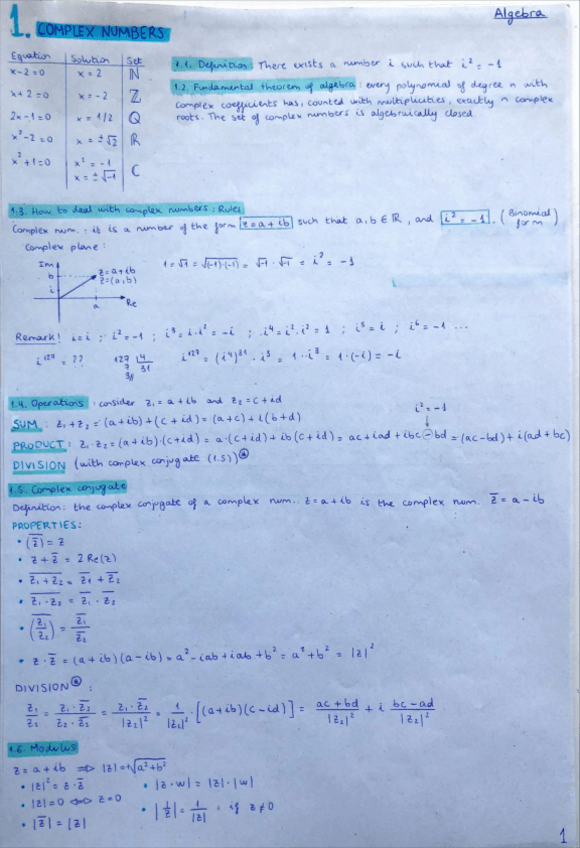 Algebra
1. COMPLEX NUMBERS
Equation Solution Set
x-2=0 x=2 ℕ
x+2=0 x=-2 ℤ
2x-1=0 x=1/2 Q
x²-2=0 x=±√2 ℝ
x²+1=0 x²=-1
x=±√-1 C
1.1. Definition: There exists a number i such that i²=-1
1.2. Fundamental theorem of algebra: every polynomial of degree n with
complex coefficients has, counted with multiplicities, exactly n complex
roots. The set of complex numbers is algebraically closed.
1.3. How to deal with complex numbers: Rules
Complex num.: ib is a number of the form z=a+ib such that a,b∈ℝ, and i²=-1. (Binomial form)
Complex plane:
Im
b
i
z=a+ib
z=(a,b)
a
Re
1=√1=√(-1)·(-1)=√-1·√-1=i²=-1
Remark! i=i ; i²=-1 ; i³=i·i²=-i ; i⁴=i²·i²=1 ; i⁵=i ; i⁶=-1 ...
i¹²⁷=?? 127 |4
7 31
3//
i¹²⁷=(i⁴)³¹·i³=1·i³=1·(-i)=-i
1.4. Operations: consider z₁=a+ib and z₂=c+id
i²=-1
SUM: z₁+z₂=(a+ib)+(c+id)=(a+c)+i(b+d)
PRODUCT: z₁·z₂=(a+ib)·(c+id)=a·(c+id)+ib(c+id)=ac+iad+ibc-bd=(ac-bd)+i(ad+bc)
DIVISION (with complex conjugate (1.5))
1.5. Complex conjugate
Definition: the complex conjugate of a complex num. z=a+ib is the complex num. z̅=a-ib
PROPERTIES:
• (z̅)̅=z
• z+z̅=2Re(z)
• \overline{z₁+z₂}=z̅₁+z̅₂
• \overline{z₁·z₂}=z̅₁·z̅₂
• \overline{(z₁/z₂)}=z̅₁/z̅₂
• z·z̅=(a+ib)(a-ib)=a²-iab+iab+b²=a²+b²=|z|²
DIVISION:
z₁/z₂=z₁·z̅₂/z₂·z̅₂=z₁·z̅₂/|z₂|²=1/|z₂|²·[(a+ib)(c-id)]=ac+bd/|z₂|²+i bc-ad/|z₂|²
1.6. Modulus
z=a+ib ⟹ |z|=+√a²+b²
• |z|²=z·z̅ • |z·w|=|z|·|w|
• |z|=0 ⟺ z=0 • |1/z|=1/|z| : if z≠0
• |z̅|=|z|
1